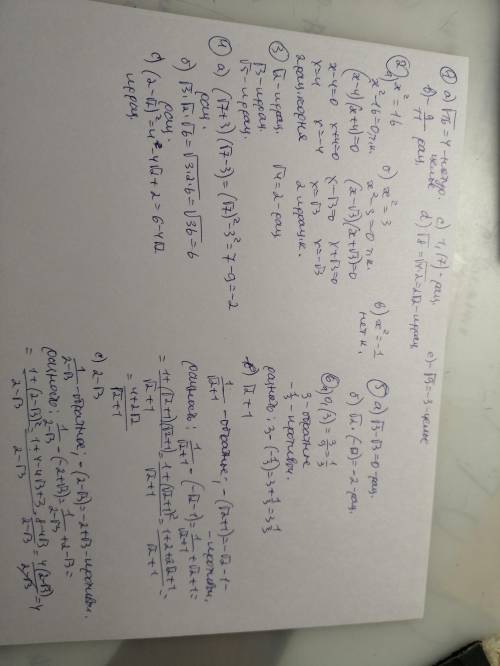 1 а) √16 = 4 - натур.
целые
в) - 9/11 рац.
с) 7,(7) - рац.
d) √8 = √4·2 = 2√2 - иррац.
е) -√9 = -3 - целые
2 а) x² = 16
x² - 16 = 0, т.к.
(x-4)(x+4) = 0
x-4=0 x+4=0
x=4 x=-4
2 рац. корня
б) x² = 3
x² - 3 = 0 т.к.
(x-√3)(x+√3)=0
x-√3=0 x+√3=0
x=√3 x=-√3
2 иррац. к.
в) x² = -1
нет к.
3 √2 - иррац. √4 = 2 - рац
√3 - иррац.
√5 - иррац.
4 а) (√7+3)(√7-3) = (√7)² - 3² = 7 - 9 = -2
рац.
б) √3·√2·√6 = √3·2·6 = √36 = 6
рац.
с) (2-√2)² = 4 - 4√2 + 2 = 6 - 4√2
иррац.
5 а) √3 - √3 = 0 - рац.
б) √2 · (-√2) = -2 - рац.
6 а) 0,(3) = 3/9 = 1/3
3 - обратное
- 1/3 - противоп.
разность: 3 - (-1/3) = 3 + 1/3 = 3 1/3
в) √2 + 1
1/(√2+1) - обратное; -(√2+1) = -√2 - 1 -
- противоп.
разность: 1/(√2+1) - (-√2-1) = 1/(√2+1) + √2 + 1 =
= (1 + (√2+1)(√2+1))/(√2+1) = (1 + (√2+1)²)/(√2+1) = (1+2+2√2+1)/(√2+1) =
= (4+2√2)/(√2+1)
с) 2-√3
1/(2-√3) - обратное; -(2-√3) = -2+√3 - противоп.
разность: 1/(2-√3) - (-2+√3) = 1/(2-√3) + 2 - √3 =
= (1 + (2-√3)²)/(2-√3) = (1+4-4√3+3)/(2-√3) = (8-4√3)/(2-√3) = 4(2-√3)/(2-√3) = 4